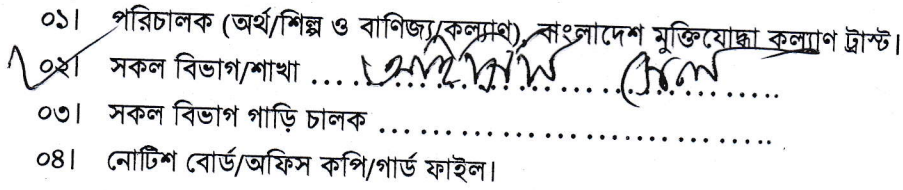 ০১। পরিচালক (অর্থ/শিল্প ও বাণিজ্য/কল্যাণ), বাংলাদেশ মুক্তিযোদ্ধা কল্যাণ ট্রাস্ট।
০২। সকল বিভাগ/শাখা .... আইসিটি সেল ....
০৩। সকল বিভাগ গাড়ি চালক ..............................
০৪। নোটিশ বোর্ড/অফিস কপি/গার্ড ফাইল।